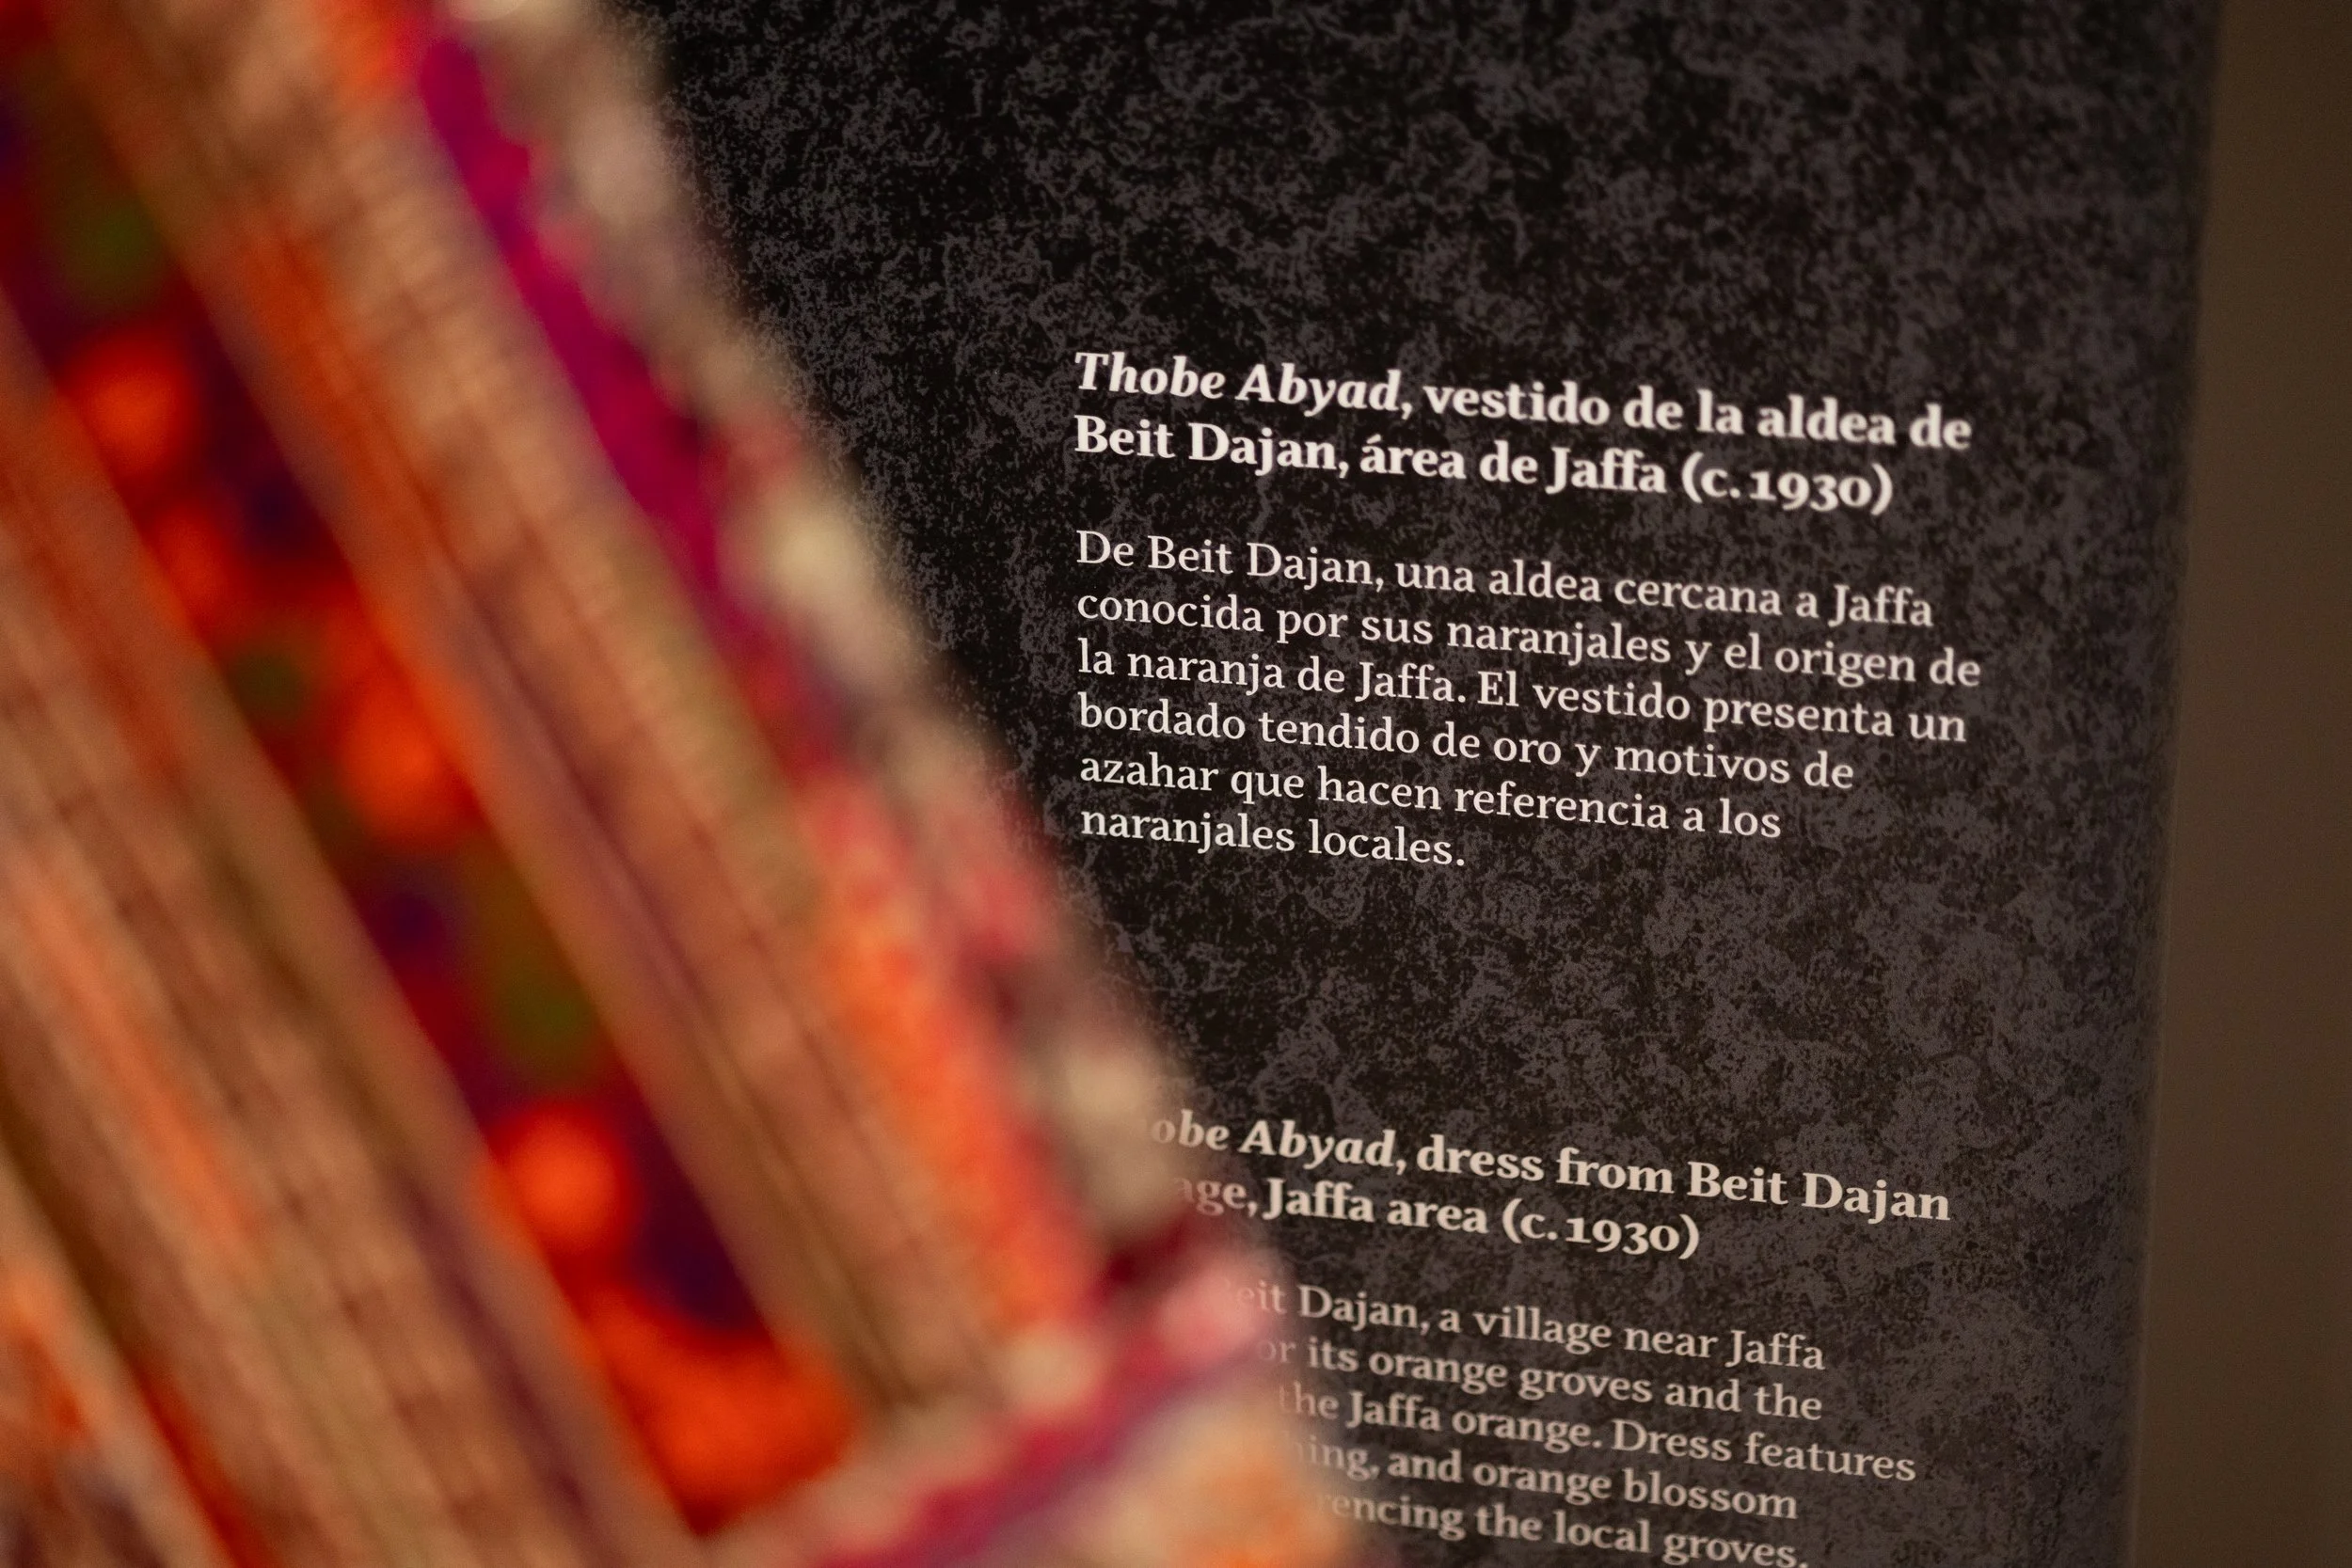 Thobe Abyad, vestido de la aldea de
Beit Dajan, área de Jaffa (c. 1930)
De Beit Dajan, una aldea cercana a Jaffa
conocida por sus naranjales y el origen de
la naranja de Jaffa. El vestido presenta un
bordado tendido de oro y motivos de
azahar que hacen referencia a los
naranjales locales.
Abyad, dress from Beit Dajan
Jaffa area (c. 1930)
Dajan, a village near Jaffa
its orange groves and the
the Jaffa orange. Dress features
and orange blossom
the local groves.